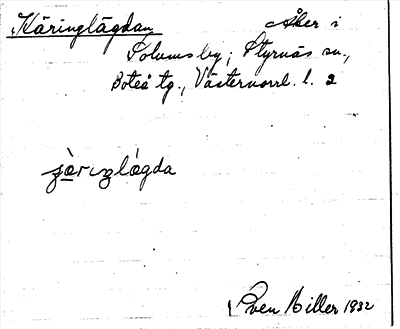 Käringlägdan Åker i
Solums by; Styrnäs sn.,
Boteå tg., Västernorrl. l. 2
järiŋlägda
Sven Hiller 1932